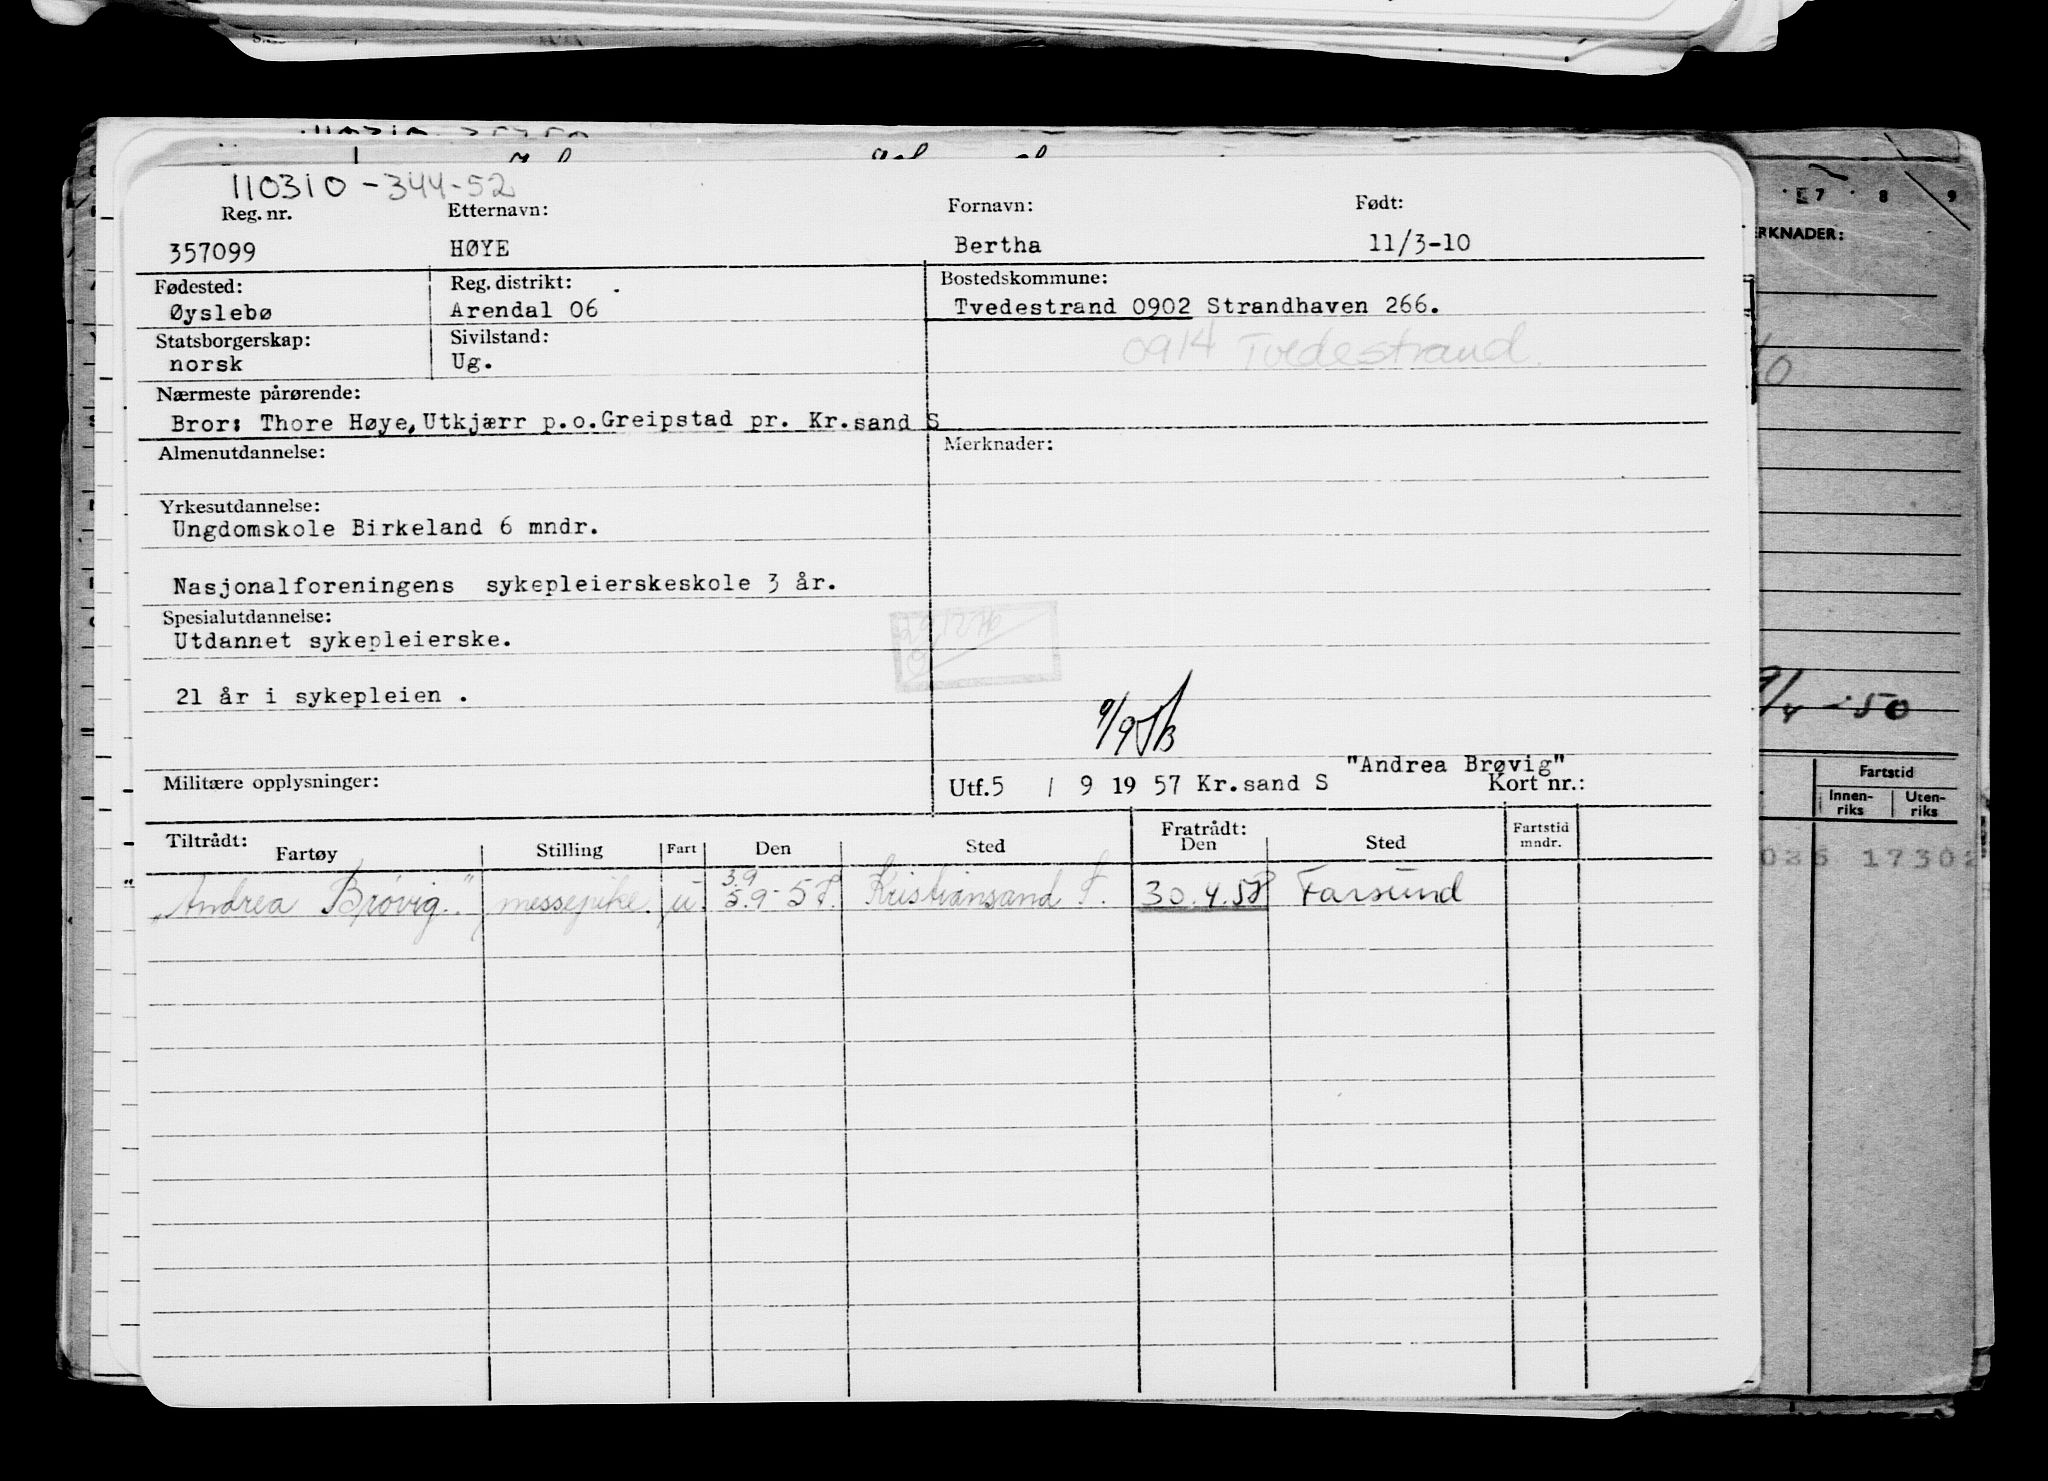 110310-344-52
Reg. nr. Etternavn: Fornavn: Født:
357099 HØYE Bertha 11/3-10
Fødested: Reg. distrikt: Bostedskommune:
Øyslebø Arendal 06 Tvedestrand 0902 Strandhaven 266.
Statsborgerskap: Sivilstand: 0914 Tvedestrand.
norsk Ug.
Nærmeste pårørende:
Bror: Thore Høye, Utkjærr p.o.Greipstad pr. Kr.sand S
Almenutdannelse: Merknader:
Yrkesutdannelse:
Ungdomskole Birkeland 6 mndr.
Nasjonalforeningens sykepleierskeskole 3 år.
Spesialutdannelse:
Utdannet sykepleierske.
21 år i sykepleien .
9/9
"Andrea Brøvig"
Militære opplysninger: Utf.5 / 9 19 57 Kr.sand S Kort nr.:
Tiltrådt: Fratrådt: Fartstid
Fartøy Stilling Fart Den Sted Den Sted mndr.
3.9
"Andrea Brøvig." messepike. u. 5.9-57. Kristiansand S. 30.4.58 Farsund
7 8 9
ERKNADER:
9/4-50
Fartstid
Innen-riks Uten-riks
17302